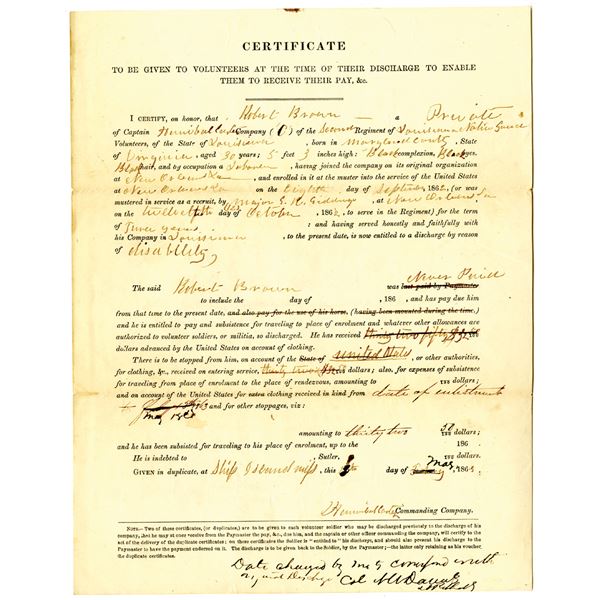 CERTIFICATE
TO BE GIVEN TO VOLUNTEERS AT THE TIME OF THEIR DISCHARGE TO ENABLE
THEM TO RECEIVE THEIR PAY, &c.
I CERTIFY, on honor, that Robert Brown — a Private
of Captain Company (C) of the Second Regiment of Louisiana Native Guard
Volunteers, of the State of Louisiana, born in Maryland County, State
of Virginia, aged 30 years; 5 feet 3 inches high; Black complexion, Black eyes,
Black hair, and by occupation a Laborer, having joined the company on its original organization
at New Orleans La, and enrolled in it at the muster into the service of the United States
at New Orleans La on the Eighth day of September, 1862, (or was
mustered in service as a recruit, by Major at New Orleans La
on the twelfth day of October, 1862, to serve in the Regiment) for the term
of Three years : and having served honestly and faithfully with
his Company in Louisiana, to the present date, is now entitled to a discharge by reason
of disability
Never Paid
The said Robert Brown was last paid by Paymaster
to include the day of , 186 , and has pay due him
from that time to the present date, and also pay for the use of his horse, (having been mounted during the time.)
and he is entitled to pay and subsistence for traveling to place of enrolment and whatever other allowances are
authorized to volunteer soldiers, or militia, so discharged. He has received thirty two
dollars advanced by the United States on account of clothing.
There is to be stopped from him, on account of the State of United States, or other authorities,
for clothing, &c., received on entering service, thirty two dollars; also, for expenses of subsistence
for traveling from place of enrolment to the place of rendezvous, amounting to dollars;
and on account of the United States for extra clothing received in kind from date of enlistment
to and for other stoppages, viz:
amounting to thirty two dollars;
and he has been subsisted for traveling to his place of enrolment, up to the 186
He is indebted to Sutler, dollars.
GIVEN in duplicate, at Ship Island Miss, this day of May, 1863.
Commanding Company.
NOTE.—Two of these certificates, (or duplicates,) are to be given to each volunteer soldier who may be discharged previously to the discharge of his
company, that he may at once receive from the Paymaster the pay, &c., due him, and the captain or other officer commanding the company, will certify to the
act of the delivery of the duplicate certificates; on these certificates the Soldier is "entitled to" his discharge, and should also present his discharge to the
Paymaster to have the payment endorsed on it. The discharge is to be given back to the Soldier, by the Paymaster;—the latter only retaining as his voucher,
the duplicate certificates.
Date changed by me to correspond with
Discharge Col